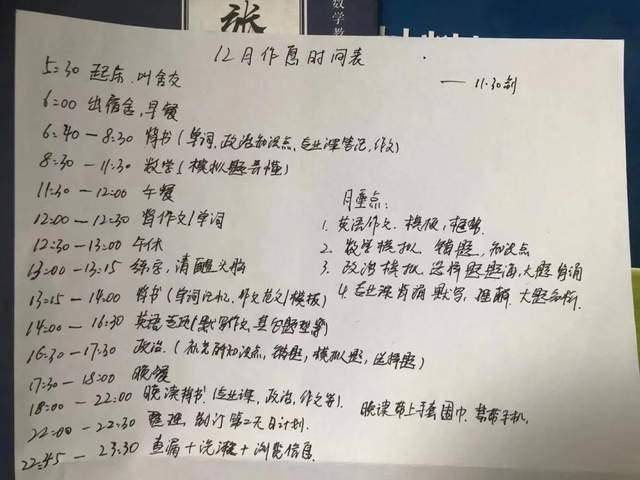 张
数学教
12月作息时间表
—— 11.30制
5:30 起床,叫舍友
6:00 出宿舍,早餐
6:40 — 8:30 背书(单词,政治知识点,专业课笔记,作文)
8:30 — 11:30 数学(模拟题弄懂)
11:30 — 12:00 午餐
12:00 — 12:30 背作文/单词
12:30 — 13:00 午休
13:00 — 13:15 练字,清醒头脑
13:15 — 14:00 背书(单词记忆,作文范文/模板)
14:00 — 16:30 英语专项(默写作文,其它题型)
16:30 — 17:30 政治.(知识点,错题,模拟题,选择题)
17:30 — 18:00 晚餐
18:00 — 22:00 晚读背书(专业课,政治,作文等). 晚读带上手套围巾.禁带手机.
22:00 — 22:30 整理,制订第二天日计划.
22:45 — 23:30 查漏+洗漱+浏览信息.
月重点:
1. 英语作文.模板,框架
2. 数学模拟 错题,知识点
3. 政治模拟,选择题题海,大题背诵
4. 专业课背诵默写,理解,大题分析